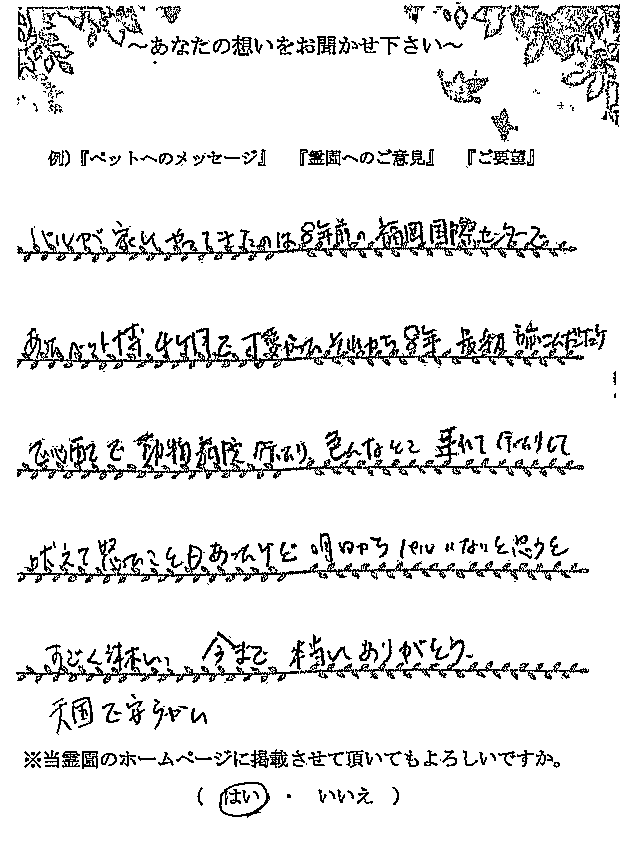 ～あなたの想いをお聞かせ下さい～
例）『ペットへのメッセージ』 『霊園へのご意見』 『ご要望』
家にやってきたのは8年前の福岡国際センターで
あった ペット博 生後 で 可愛かった それから8年、最初
で心配で 動物病院 行ったり、色んなとこ 連れて行ったりして
吠えて怒ったこともあったけど 明日から いないと思うと
すごく寂しい。 今まで 本当に ありがとう。
天国で安らかに
※当霊園のホームページに掲載させて頂いてもよろしいですか。
（ はい ・ いいえ ）